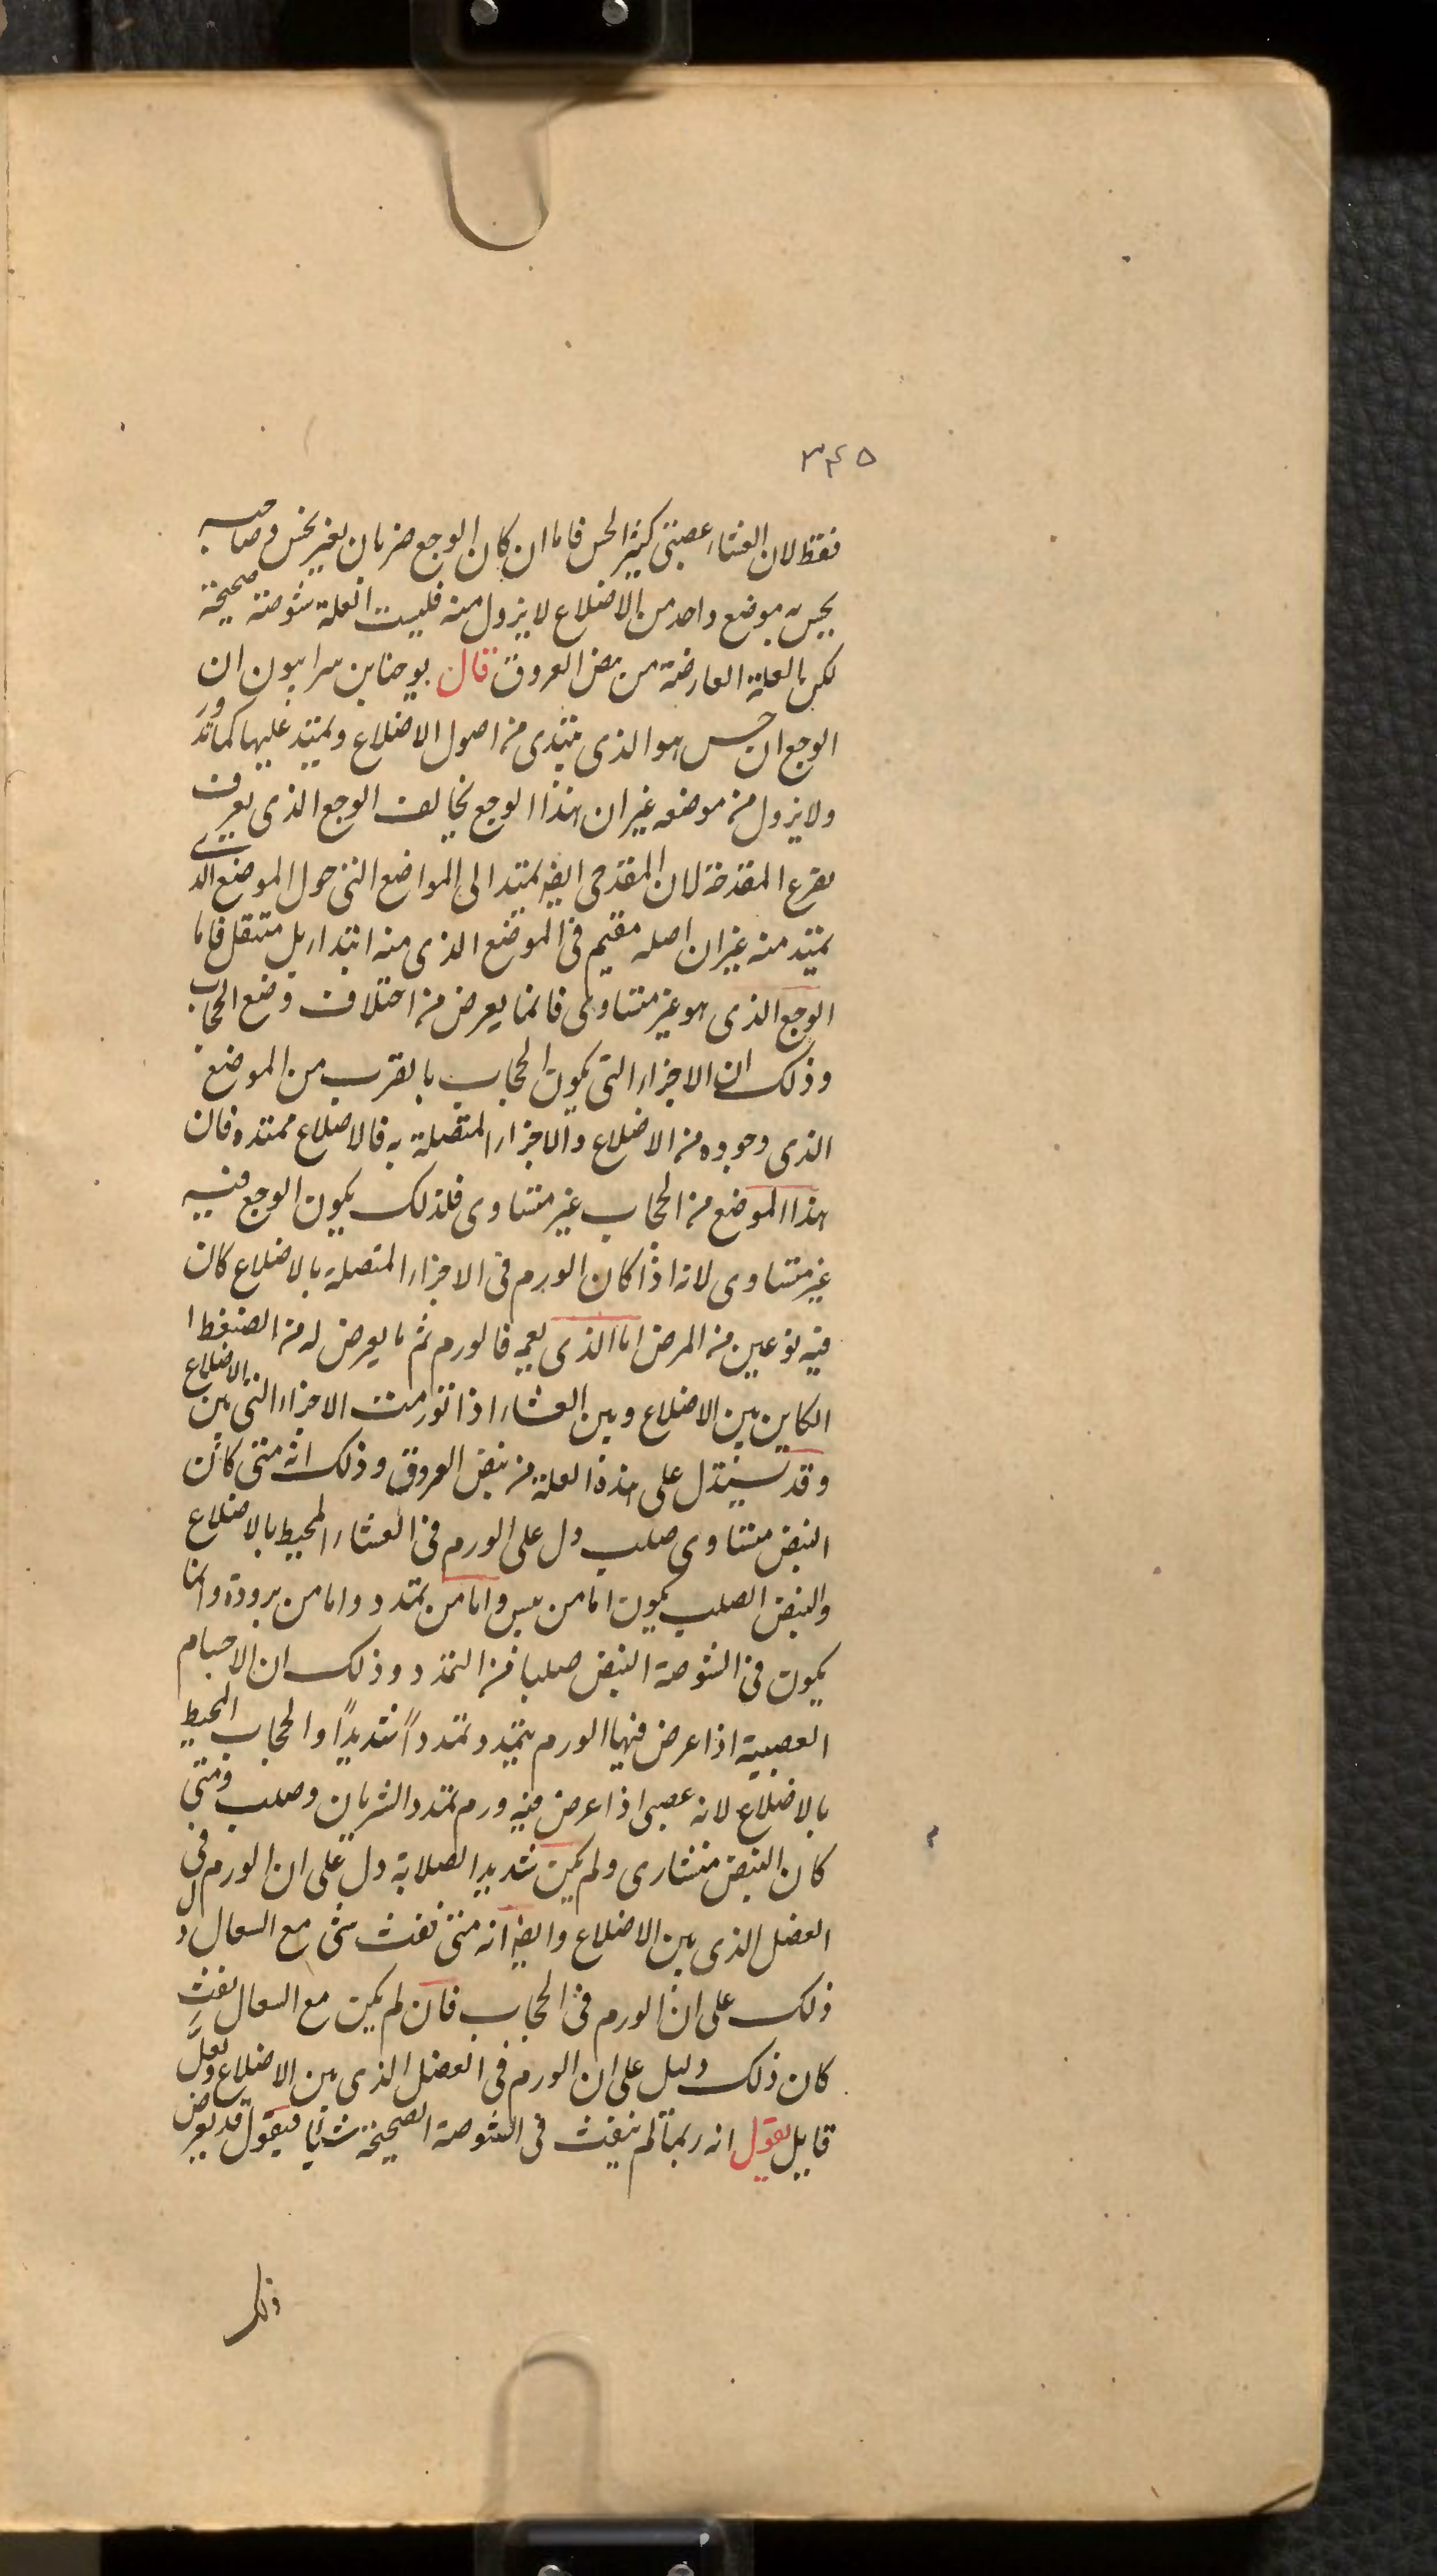 ٣٤٥
فقط لان الغشاء عصبى كثير الحس فاما ان كان الوجع ضربان بغير نخس وصاحبه
يحس به بموضع واحد من الاضلاع لا يزول منه فليست العلة شوصة صحيحة
لكن العلة العارضة من بعض العروق قال يوحنا بن سرابيون ان
الوجع ان حس هو الذى يبتدى من اصول الاضلاع ويمتد عليها كما تدور
ولا يزول من موضعه غير ان هذا الوجع يخالف الوجع الذى يعرف
بقرع المقدحة لان المقدحى ايضا يمتد الى المواضع التى حول الموضع الذى
يمتد منه غير ان اصله مقيم فى الموضع الذى منه ابتداء بل متنقل فاما
الوجع الذى هو غير متساوى فانما يعرض من اختلاف وضع الحجاب
وذلك ان الاجزاء التى يكون الحجاب بالقرب من الموضع
الذى وجوده من الاضلاع والاجزاء المتصلة به فالاضلاع ممتدة فان
هذا الموضع من الحجاب غير متساوى فلذلك يكون الوجع فيه
غير متساوى لانه اذا كان الورم فى الاجزاء المتصلة بالاضلاع كان
فيه نوعين من المرض اما الذى يعمه فالورم ثم ما يعرض له من الضغط
الكاين بين الاضلاع وبين الغشاء اذا تورمت الاجزاء التى بين الاضلاع
وقد يستدل على هذه العلة من نبض العروق وذلك انه متى كان
النبض متساوى صلب دل على الورم فى الغشاء المحيط بالاضلاع
والنبض الصلب يكون اما من يبس واما من تمدد واما من برودة وانما
يكون فى الشوصة النبض صلبا من التمدد وذلك ان الاجسام
العصبية اذا عرض فيها الورم يتمدد تمدداً شديداً والحجاب المحيط
بالاضلاع لانه عصبى اذا عرض فيه ورم تمدد الشريان وصلب ومتى
كان النبض منشارى ولم يكن شديد الصلابة دل على ان الورم فى
العضل الذى بين الاضلاع وايضا انه متى نفث شى مع السعال دل
ذلك على ان الورم فى الحجاب فان لم يكن مع السعال نفث
كان ذلك دليل على ان الورم فى العضل الذى بين الاضلاع ولعل
قايل يقول انه ربما لم ينفث فى الشوصة الصحيحة شيا فيقول قد يعرض
ذلك